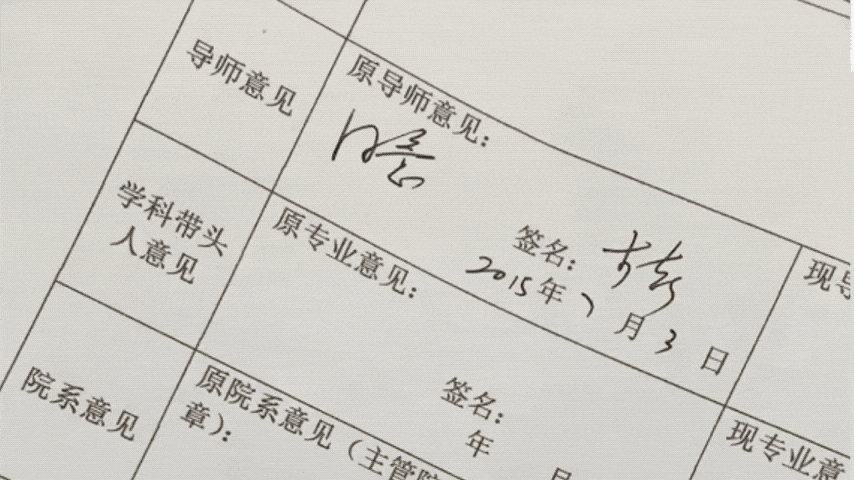 导师意见
原导师意见:
同意
签名:
2015年7月3日
现导
学科带头
人意见
原专业意见:
签名:
年
月
现专业意
院系意见
原院系意见(主管院
章):